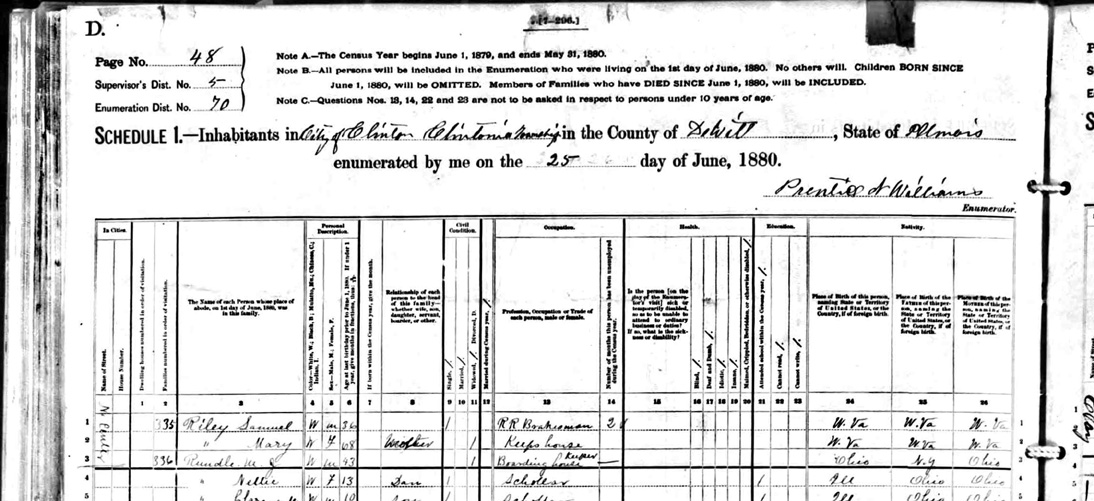 D.
[7-296.]
Page No. 48
Supervisor's Dist. No. 5
Enumeration Dist. No. 70
Note A.—The Census Year begins June 1, 1879, and ends May 31, 1880.
Note B.—All persons will be included in the Enumeration who were living on the 1st day of June, 1880. No others will. Children BORN SINCE
June 1, 1880, will be OMITTED. Members of Families who have DIED SINCE June 1, 1880, will be INCLUDED.
Note C.—Questions Nos. 13, 14, 22 and 23 are not to be asked in respect to persons under 10 years of age.
SCHEDULE 1.—Inhabitants in City of Clinton Clintonia Township in the County of DeWitt, State of Illinois
enumerated by me on the 25 day of June, 1880.
Williams
Enumerator.
In Cities.
Personal Description.
Civil Condition.
Occupation.
Health.
Education.
Nativity.
Name of Street.
House Number.
Dwelling houses numbered in order of visitation.
Families numbered in order of visitation.
The Name of each Person whose place of abode, on 1st day of June, 1880, was in this family.
Color—White, W.; Black, B.; Mulatto, Mu.; Chinese, C.; Indian, I.
Sex—Male, M.; Female, F.
Age at last birthday prior to June 1, 1880. If under 1 year, give months in fractions, thus:
If born within the Census year, give the month.
Relationship of each person to the head of this family—whether wife, son, daughter, servant, boarder, or other.
Single, /.
Married, /.
Widowed, /. Divorced, D.
Married during Census year, /.
Profession, Occupation or Trade of each person, male or female.
Number of months this person has been unemployed during the Census year.
Is the person [on the day of the Enumerator's visit] sick or temporarily disabled, so as to be unable to attend to ordinary business or duties? If so, what is the sickness or disability?
Blind, /.
Deaf and Dumb, /.
Idiotic, /.
Insane, /.
Maimed, Crippled, Bedridden, or otherwise disabled, /.
Attended school within the Census year, /.
Cannot read, /.
Cannot write, /.
Place of Birth of this person, naming State or Territory of United States, or the Country, if of foreign birth.
Place of Birth of the FATHER of this person, naming the State or Territory of United States, or the Country, if of foreign birth.
Place of Birth of the MOTHER of this person, naming the State or Territory of United States, or the Country, if of foreign birth.
1 2 3 4 5 6 7 8 9 10 11 12 13 14 15 16 17 18 19 20 21 22 23 24 25 26
1 335 Riley Samuel W m 36 / R R Brakesman 2 W. Va W. Va W. Va 1
2 " Mary W F 68 Mother / Keeps house W. Va W Va W. Va 2
3 336 Rundle M W m 43 / Boarding house Keeper Ohio N.Y Ohio 3
4 " Nettie W F 13 Dau / Scholar / Ill Ohio Ohio 4
5 " W m 10 Son / Scholar / Ill Ohio Ohio